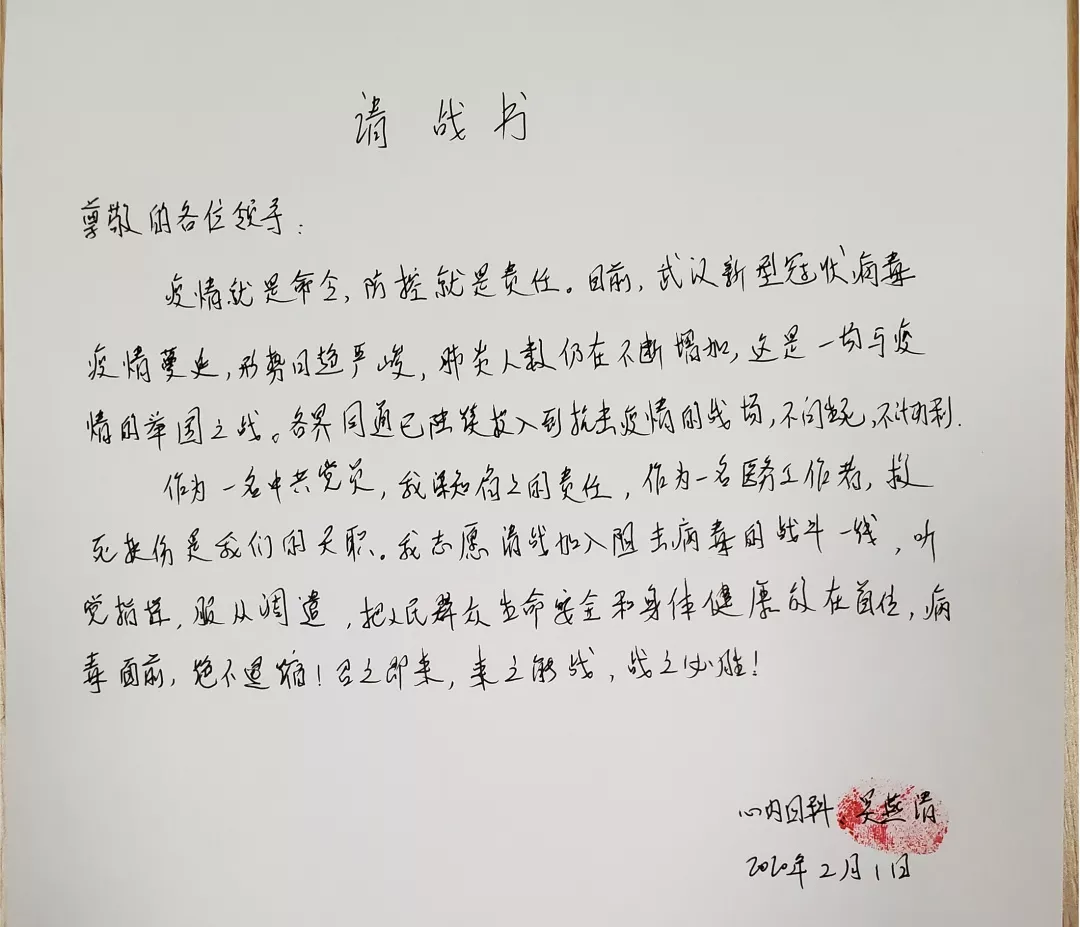 请战书
尊敬的各位领导:
疫情就是命令,防控就是责任。目前,武汉新型冠状病毒
疫情蔓延,形势日趋严峻,肺炎人数仍在不断增加,这是一场与疫
情的举国之战。各界同道已陆续投入到抗击疫情的战场,不问生死,不计功利.
作为一名中共党员,我深知肩上的责任,作为一名医务工作者,救
死扶伤是我们的天职。我志愿请战加入阻击病毒的战斗一线,听
党指挥,服从调遣,把人民群众生命安全和身体健康放在首位,病
毒面前,绝不退缩!召之即来,来之能战,战之必胜!
心内科 吴燕
2020年2月1日